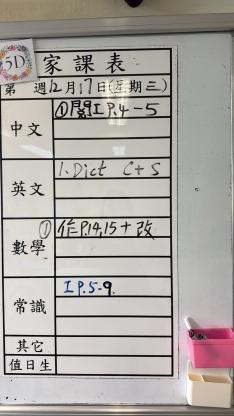 5D
家課表
第 週12月17日(星期三)
中文 ①閱工P.4-5
英文 1. Dict C+S
數學 ①作P.14,15+改
常識 工P.5-9.
其它
值日生